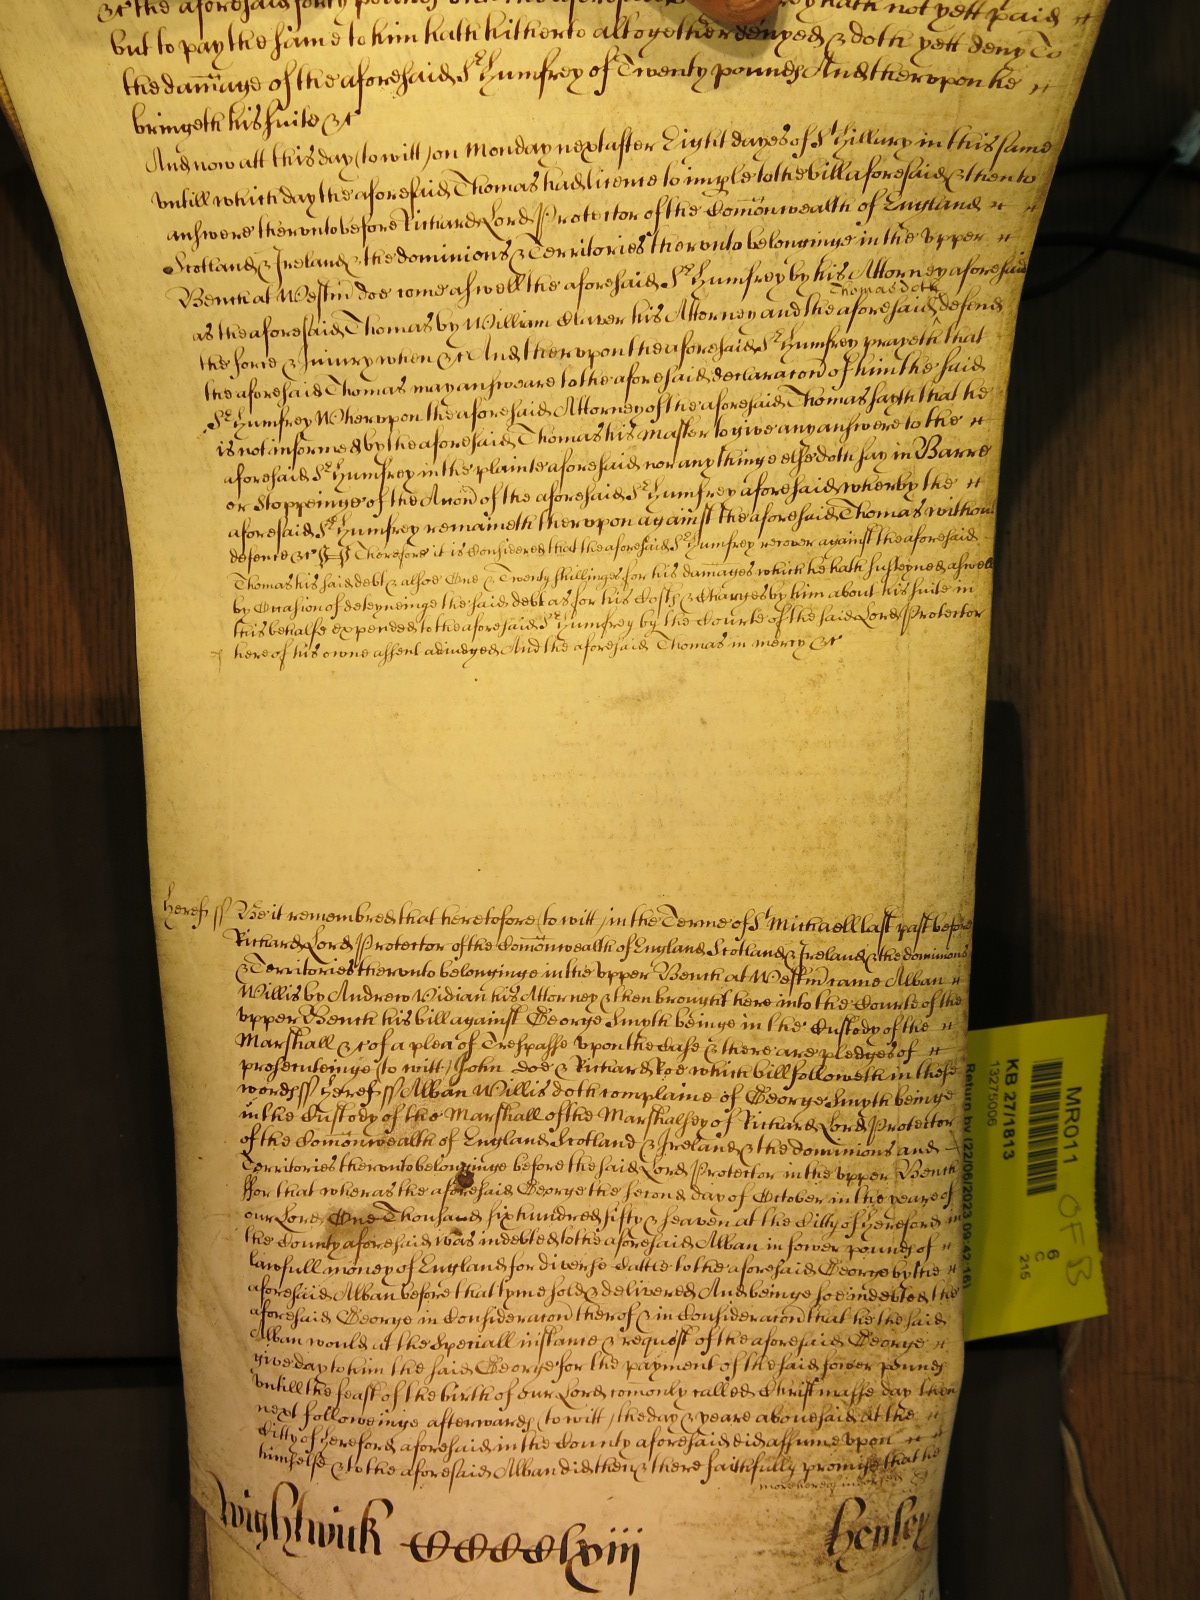 &c the aforesaid forty pounds hath not yett paid
but to pay the same to him hath hitherto altogether denyed & doth yett deny To
the damage of the aforesaid Sr Humfrey of Twenty pounds And therupon he
bringeth his suite &c
And now att this day (to witt) on Monday next after Eight dayes of St Hillary in this same
untill which day the aforesaid Thomas had licence to imple to the bill aforesaid & then to
answere therunto before Richard Lord Protector of the Comonwealth of England
Scotland & Ireland & the dominions & Territories therunto belonginge in the upper
Bench at Westm doe come aswell the aforesaid Sr Humfrey by his Attorney aforesaid
Thomas doth
as the aforesaid Thomas by William Carver his Attorney and the aforesaid defend
the force & Iniury when &c And therupon the aforesaid Sr Humfrey prayeth that
the aforesaid Thomas may answeare to the aforesaid declaracon of him the said
Sr Humfrey Wherupon the aforesaid Attorney of the aforesaid Thomas sayth that he
is not informed by the aforesaid Thomas his Master to give any answere to the
aforesaid Sr Humfrey in the plainte aforesaid nor any thinge else doth say in Barre
or Stoppeinge of the Accon of the aforesaid Sr Humfrey aforesaid wherby the
aforesaid Sr Humfrey remaineth therupon against the aforesaid Thomas without
defence &c Therefore it is Considered that the aforesaid Sr Humfrey recover against the aforesaid
Thomas his said debt & alsoe One & Twenty shillinges for his damages which he hath susteyned aswell
by Occasion of deteyneinge the said debt as for his Costs & Charges by him about his suite in
this behalfe expended to the aforesaid Sr Humfrey by the Courte of the said Lord Protector
here of his owne assent adiudged And the aforesaid Thomas in mercy &c
Heref ss Be it remembred that heretofore (to witt) in the Terme of St Michaell last past before
Richard Lord Protector of the Comonwealth of England Scotland & Ireland & the dominions
& Territories therunto belonginge in the upper Bench at Westm came Alban
Willis by Andrew Vidian his Attorney & then brought here into the Courte of the
upper Bench his bill against George Smyth beinge in the Custody of the
Marshall &c of a plea of Trespasse upon the Case & there are pledges of
prosecuteinge (to witt) John Doe & Richard Roe which bill followeth in these
words ss Heref ss Alban Willis doth complaine of George Smyth beinge
in the Custody of the Marshall of the Marshalsey of Richard Lord Protector
of the Comonwealth of England Scotland & Ireland & the dominions and
Territories therunto belonginge before the said Lord Protector in the upper Bench
ffor that wheras the aforesaid George the second day of October in the yeare of
our Lord One Thousand six hundred fifty & seaven at the Citty of Hereford in
the County aforesaid was indebted to the aforesaid Alban in fower pounds of
lawfull money of England for diverse Cattle to the aforesaid George by the
aforesaid Alban before that tyme sold & delivered And beinge soe indebted the
aforesaid George in Consideracon therof & in Consideracon that he the said
Alban would at the Speciall instance & request of the aforesaid George
give day to him the said George for the payment of the said fower pounds
untill the feast of the birth of our Lord comonly called Christmasse day then
next followeinge afterwards (to witt) the day & yeare abovesaid at the
Citty of Hereford aforesaid in the County aforesaid did assume upon
himselfe & to the aforesaid Alban did then & there faithfully promise that he
Wightwick CCCClxiii Henley
MR011 OF B
6
C
215
KB 27/1813
13275006
Return by (22/06/2023 09:42:16)